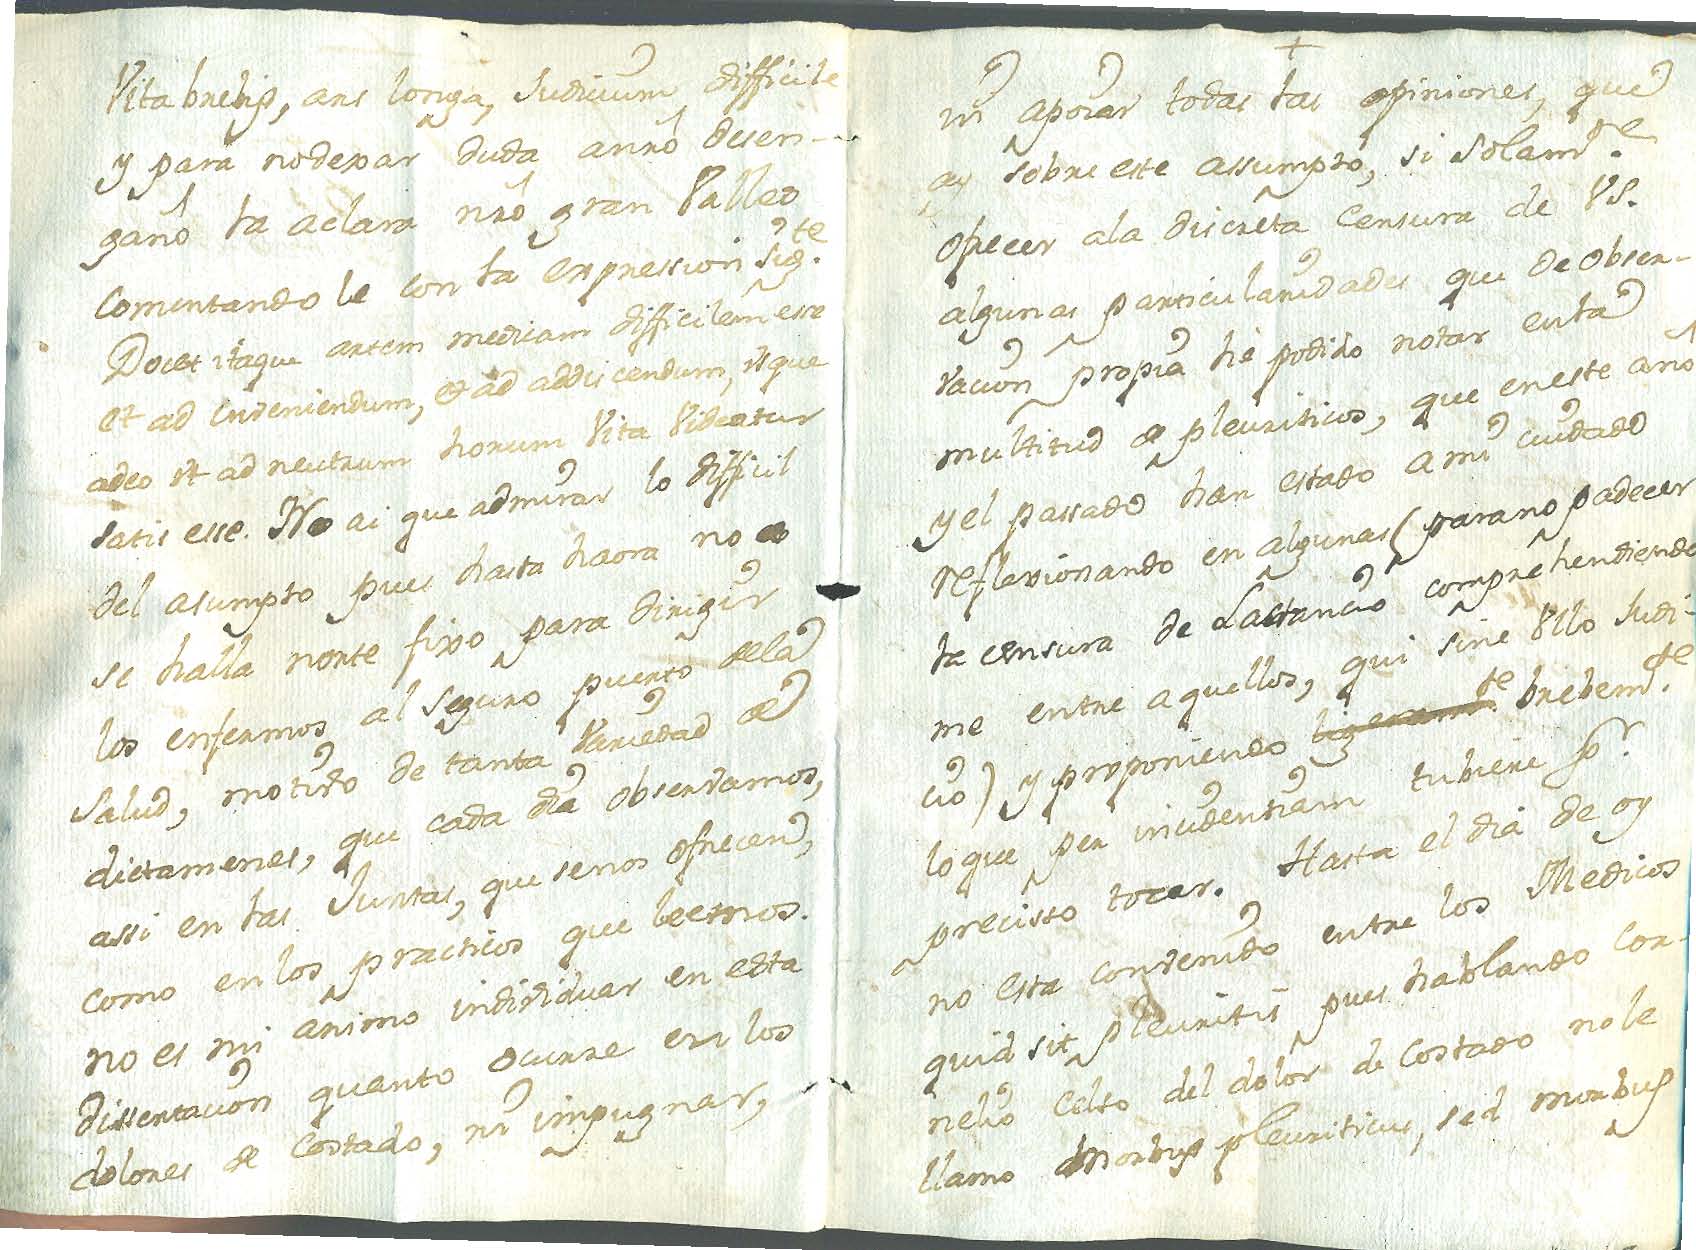 Vita brebis, ars longa, Judicium difficile
y para no dexar duda anr̃o desen-
gaño la aclara nr̃o gran Valles
comentandole con la expression sig.te
Docet itaque artem medicam difficilem esse
et ad inveniendum, et ad addiscendum, usque
adeo ut ad neutrum horum Vita Videatur
satis esse. No ai que admirar lo difficil
del asumpto pues hasta haora no
se halla norte fixo para dirigir
los enfermos al seguro puerto dela
Salud, motivo de tanta Variedad de
dictamenes, que cada dia observamos,
assi en las Juntas, que senos ofrecen,
como en los practicos que leemos.
no es mi animo individuar en esta
dissertacion quanto ocurre en los
dolores de Costado, ni impugnar,
ni apoiar todas las opiniones, que
ay sobre este assumpto, si solam.te
ofrecer ala discreta Censura de VS.
algunas particularidades que de obser-
vacion propia he podido notar enla
multitud de pleuriticos, que eneste año
y el passado han estado a mi cuidado
reflexionando en algunas (para no padecer
la censura de Lactancio comprehendiendo
me entre aquellos, qui sine Ullo Judi-
cio) y proponiendo ligeram.te brebem.te
lo que per incidentiam tubiere p.r
precisso tocar. Hasta el dia de oy
no esta convenido entre los Medicos
quid sit pleuritis pues hablando Cor-
nelio Celso del dolor de Costado nole
llamo morbus pleuriticus, sed morbus